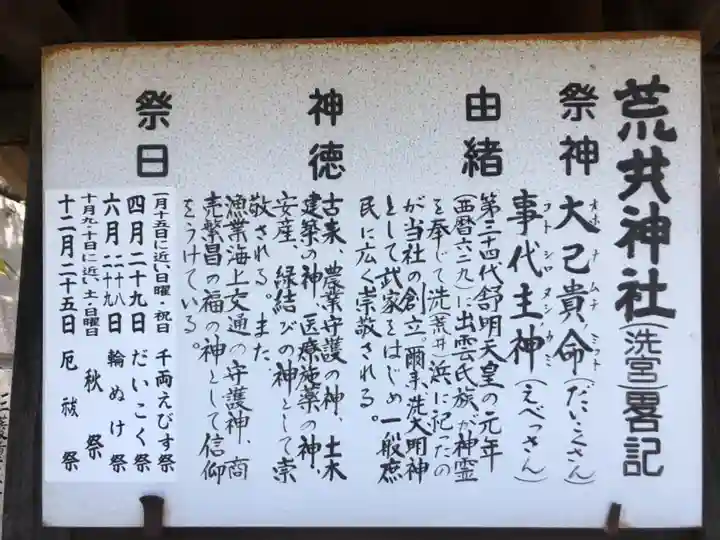 荒井神社(洗宮)畧記
祭神
大己貴命(だいこくさん)
オホナムチノミコト
事代主神(えべっさん)
コトシロヌシノカミ
由緒
第三十四代舒明天皇の元年
(西暦六二九)に出雲氏族が神霊
を奉じて洗(荒井)浜に祀ったの
が当社の創立。爾来、洗大明神
として武家をはじめ一般庶
民に広く崇敬される。
神徳
古来、農業守護の神、土木
建築の神、医療施薬の神、
安産、縁結びの神として崇
敬される。また、
漁業海上交通の守護神、商
売繁昌の福の神として信仰
をうけている。
祭日
一月十五日に近い日曜・祝日 千両えびす祭
四月二十九日 だいこく祭
六月二十八二十九日 輪ぬけ祭
十月九・十日に近い土・日曜日 秋祭
十二月二十五日 厄祓祭